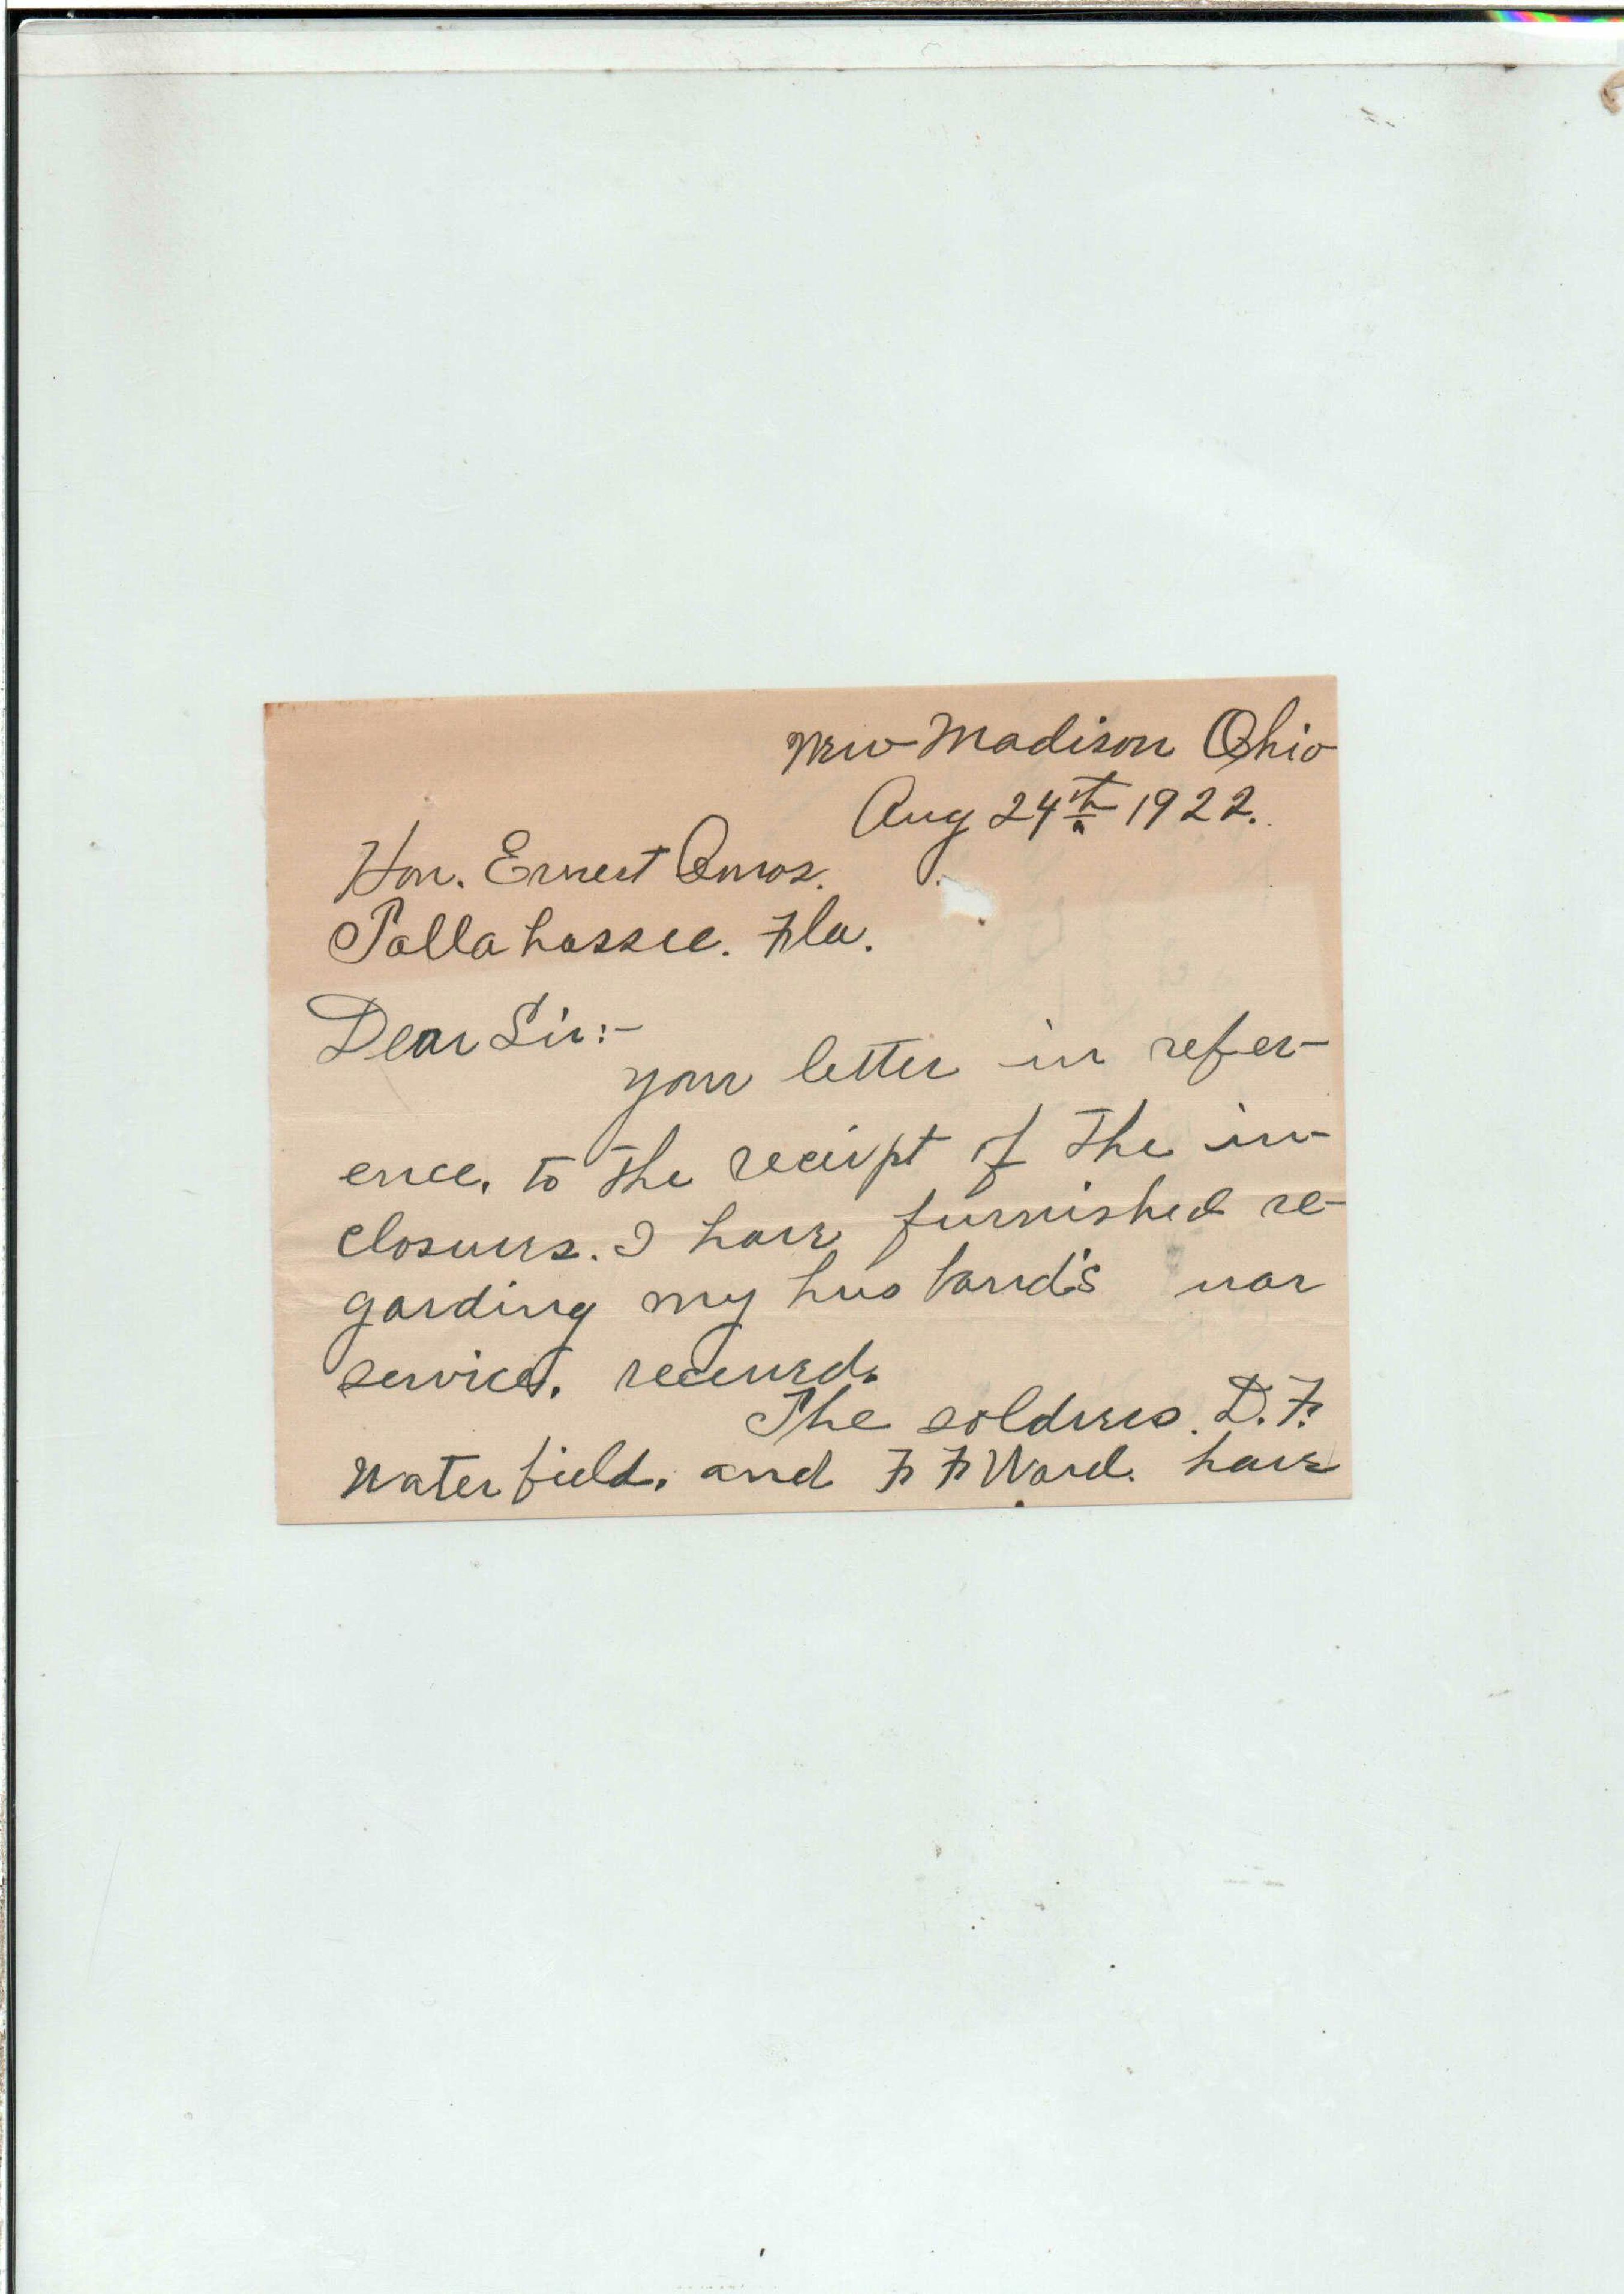 New Madison Ohio
Aug 24th 1922.
Hon. Ernest Amos.
Tallahassee. Fla.
Dear Sir:-
your letter in refer-
ence. to the receipt of the in-
closures. I have furnished re-
garding my husband's war
service. received.
The soldiers. D. F.
Waterfield. and F F Ward. have